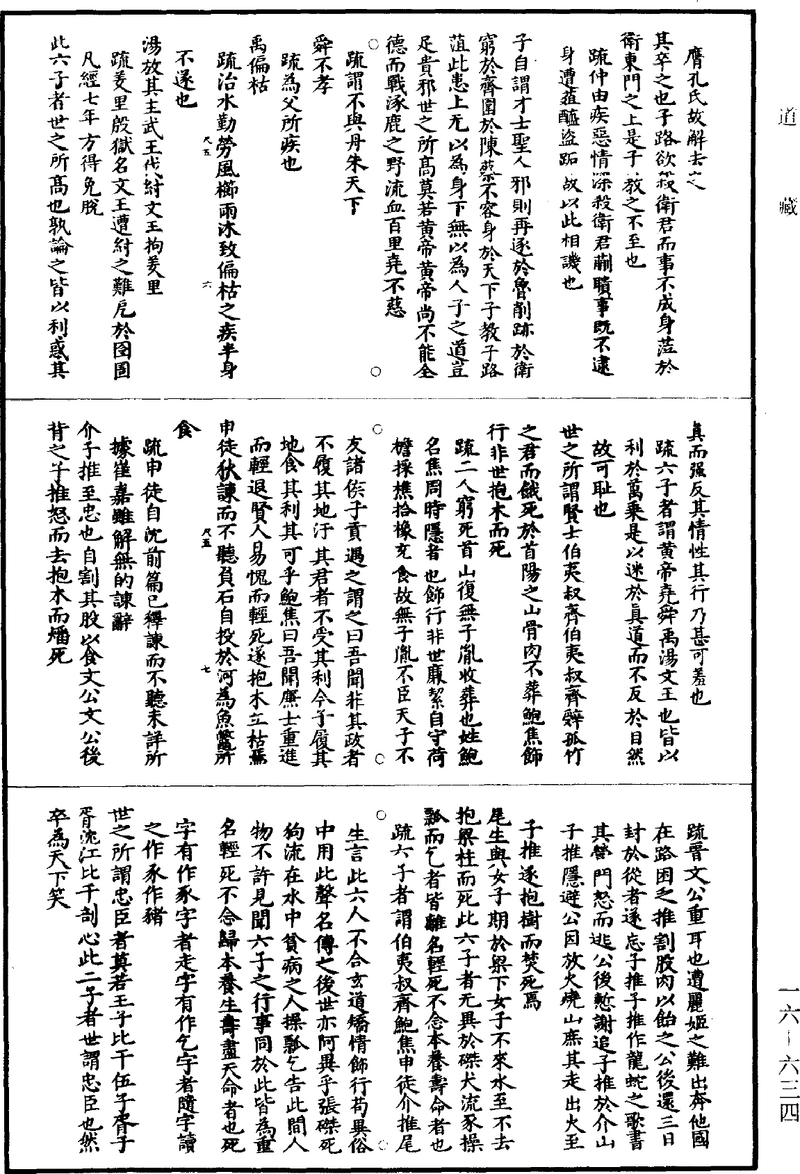 道藏
膺孔氏故解去之
其卒之也子路欲殺衛君而事不成身菹於
衛東門之上是子教之不至也
疏仲由疾惡情深殺衛君蒯聵事既不逮
身遭葅醢盜跖故以此相譏也
子自謂才士聖人邪則再逐於魯削跡於衛
窮於齊圍於陳蔡不容身於天下子教子路
菹此患上无以為身下無以為人子之道豈
足貴邪世之所高莫若黄帝黄帝尚不能全
德而戰涿鹿之野流血百里堯不慈
疏謂不與丹朱天下
舜不孝
疏為父所疾也
禹偏枯
疏治水勤勞風櫛雨沐致偏枯之疾半身
不遂也
湯放其主武王伐紂文王拘羑里
疏羑里殷獄名文王遭紂之難厄於囹圄
凡經七年方得免脫
此六子者世之所高也孰論之皆以利惑其
尺五 六
真而强反其情性其行乃甚可羞也
疏六子者謂黄帝堯舜禹湯文王也皆以
利於萬乗是以迷於真道而不反於自然
故可耻也
世之所謂賢士伯夷叔齊伯夷叔齊辭孤竹
之君而餓死於首陽之山骨肉不葬鮑焦飾
行非世抱木而死
疏二人窮死首山復無子胤收葬也姓鮑
名焦周時隱者也飾行非世廉絜自守荷
檐採樵拾橡充食故無子胤不臣天子不
友諸侯子貢遇之謂之曰吾聞非其政者
不履其地汙其君者不受其利今子履其
地食其利其可乎鮑焦曰吾聞廉士重進
而輕退賢人易愧而輕死遂抱木立枯焉
申徒狄諫而不聽負石自投於河為魚鼈所
食
疏申徒自沈前篇已釋諫而不聽未詳所
據崔嘉雖解無的諫辭
介子推至忠也自割其股以食文公文公後
背之子推怒而去抱木而燔死
尺五 七
疏晋文公重耳也遭麗姬之難出奔他國
在路困乏推割股肉以飴之公後還三日
封於從者遂忘子推子推作龍蛇之歌書
其營門怒而逃公後慙謝追子推於介山
子推隱避公因放火燒山庶其走出火至
子推遂抱樹而焚死焉
尾生與女子期於梁下女子不來水至不去
抱梁柱而死此六子者无異於磔犬流豕操
瓢而乞者皆離名輕死不念本養壽命者也
疏六子者謂伯夷叔齊鮑焦申徒介推尾
生言此六人不合玄道矯情飾行苟異俗
中用此聲名傳之後世亦何異乎張磔死
狗流在水中貧病之人操瓢乞告此間人
物不許見聞六子之行事同於此皆為重
名輕死不念歸本養生壽盡天命者也死
字有作豕字者走字有作乞字者隨字讀
之作豕作豬
世之所謂忠臣者莫若王子比干伍子胥子
胥沈江比干剖心此二子者世謂忠臣也然
卒為天下笑
一六一六三四